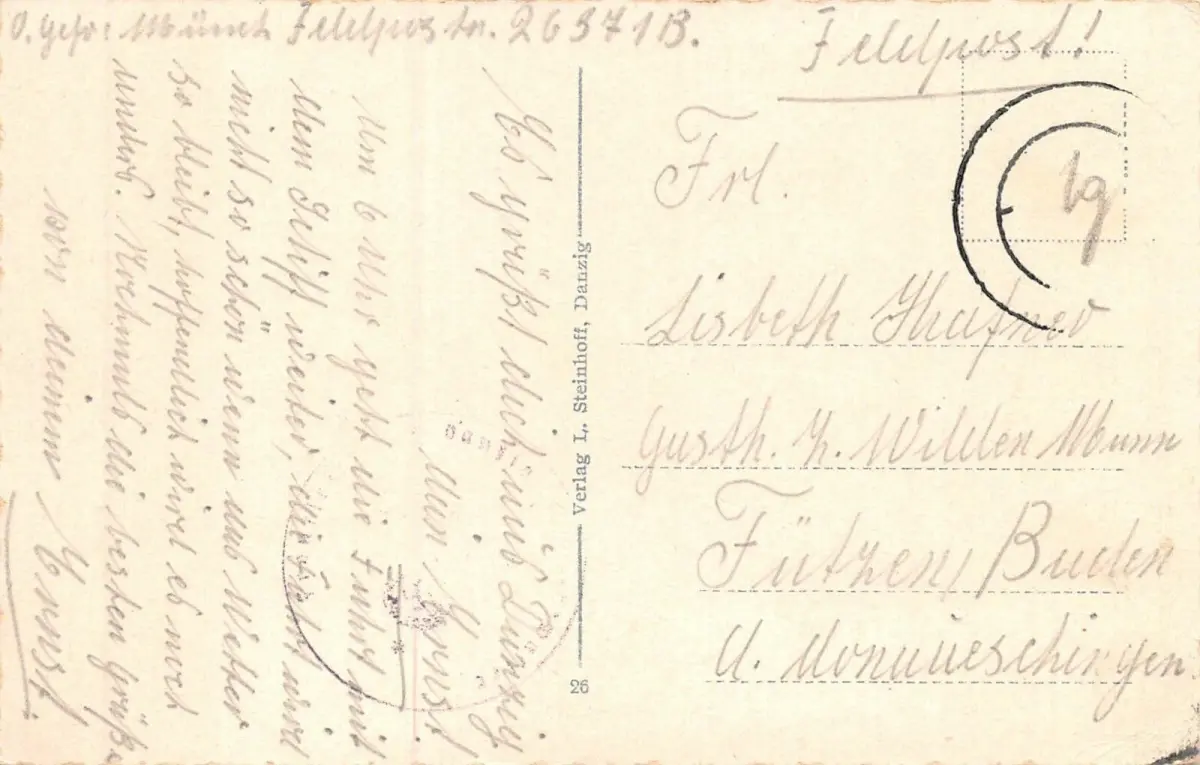 O. Gefr: Münch Feldpostn. 26971B.
Es grüßt dich aus Danzig
dein Ernst
Um 6 Uhr geht die Fahrt mit
dem Schiff weiter, die Fahrt wird
nicht so schön wenn das Wetter
so bleibt, hoffendlich wird es noch
anders. Nochmals die besten Grüße
von deinem Ernst.
Verlag L. Steinhoff, Danzig
26
Feldpost!
Frl.
Lisbeth Hafner
Gasth. z. Wilden Mann
Fützen, Baden
A. Donaueschingen.